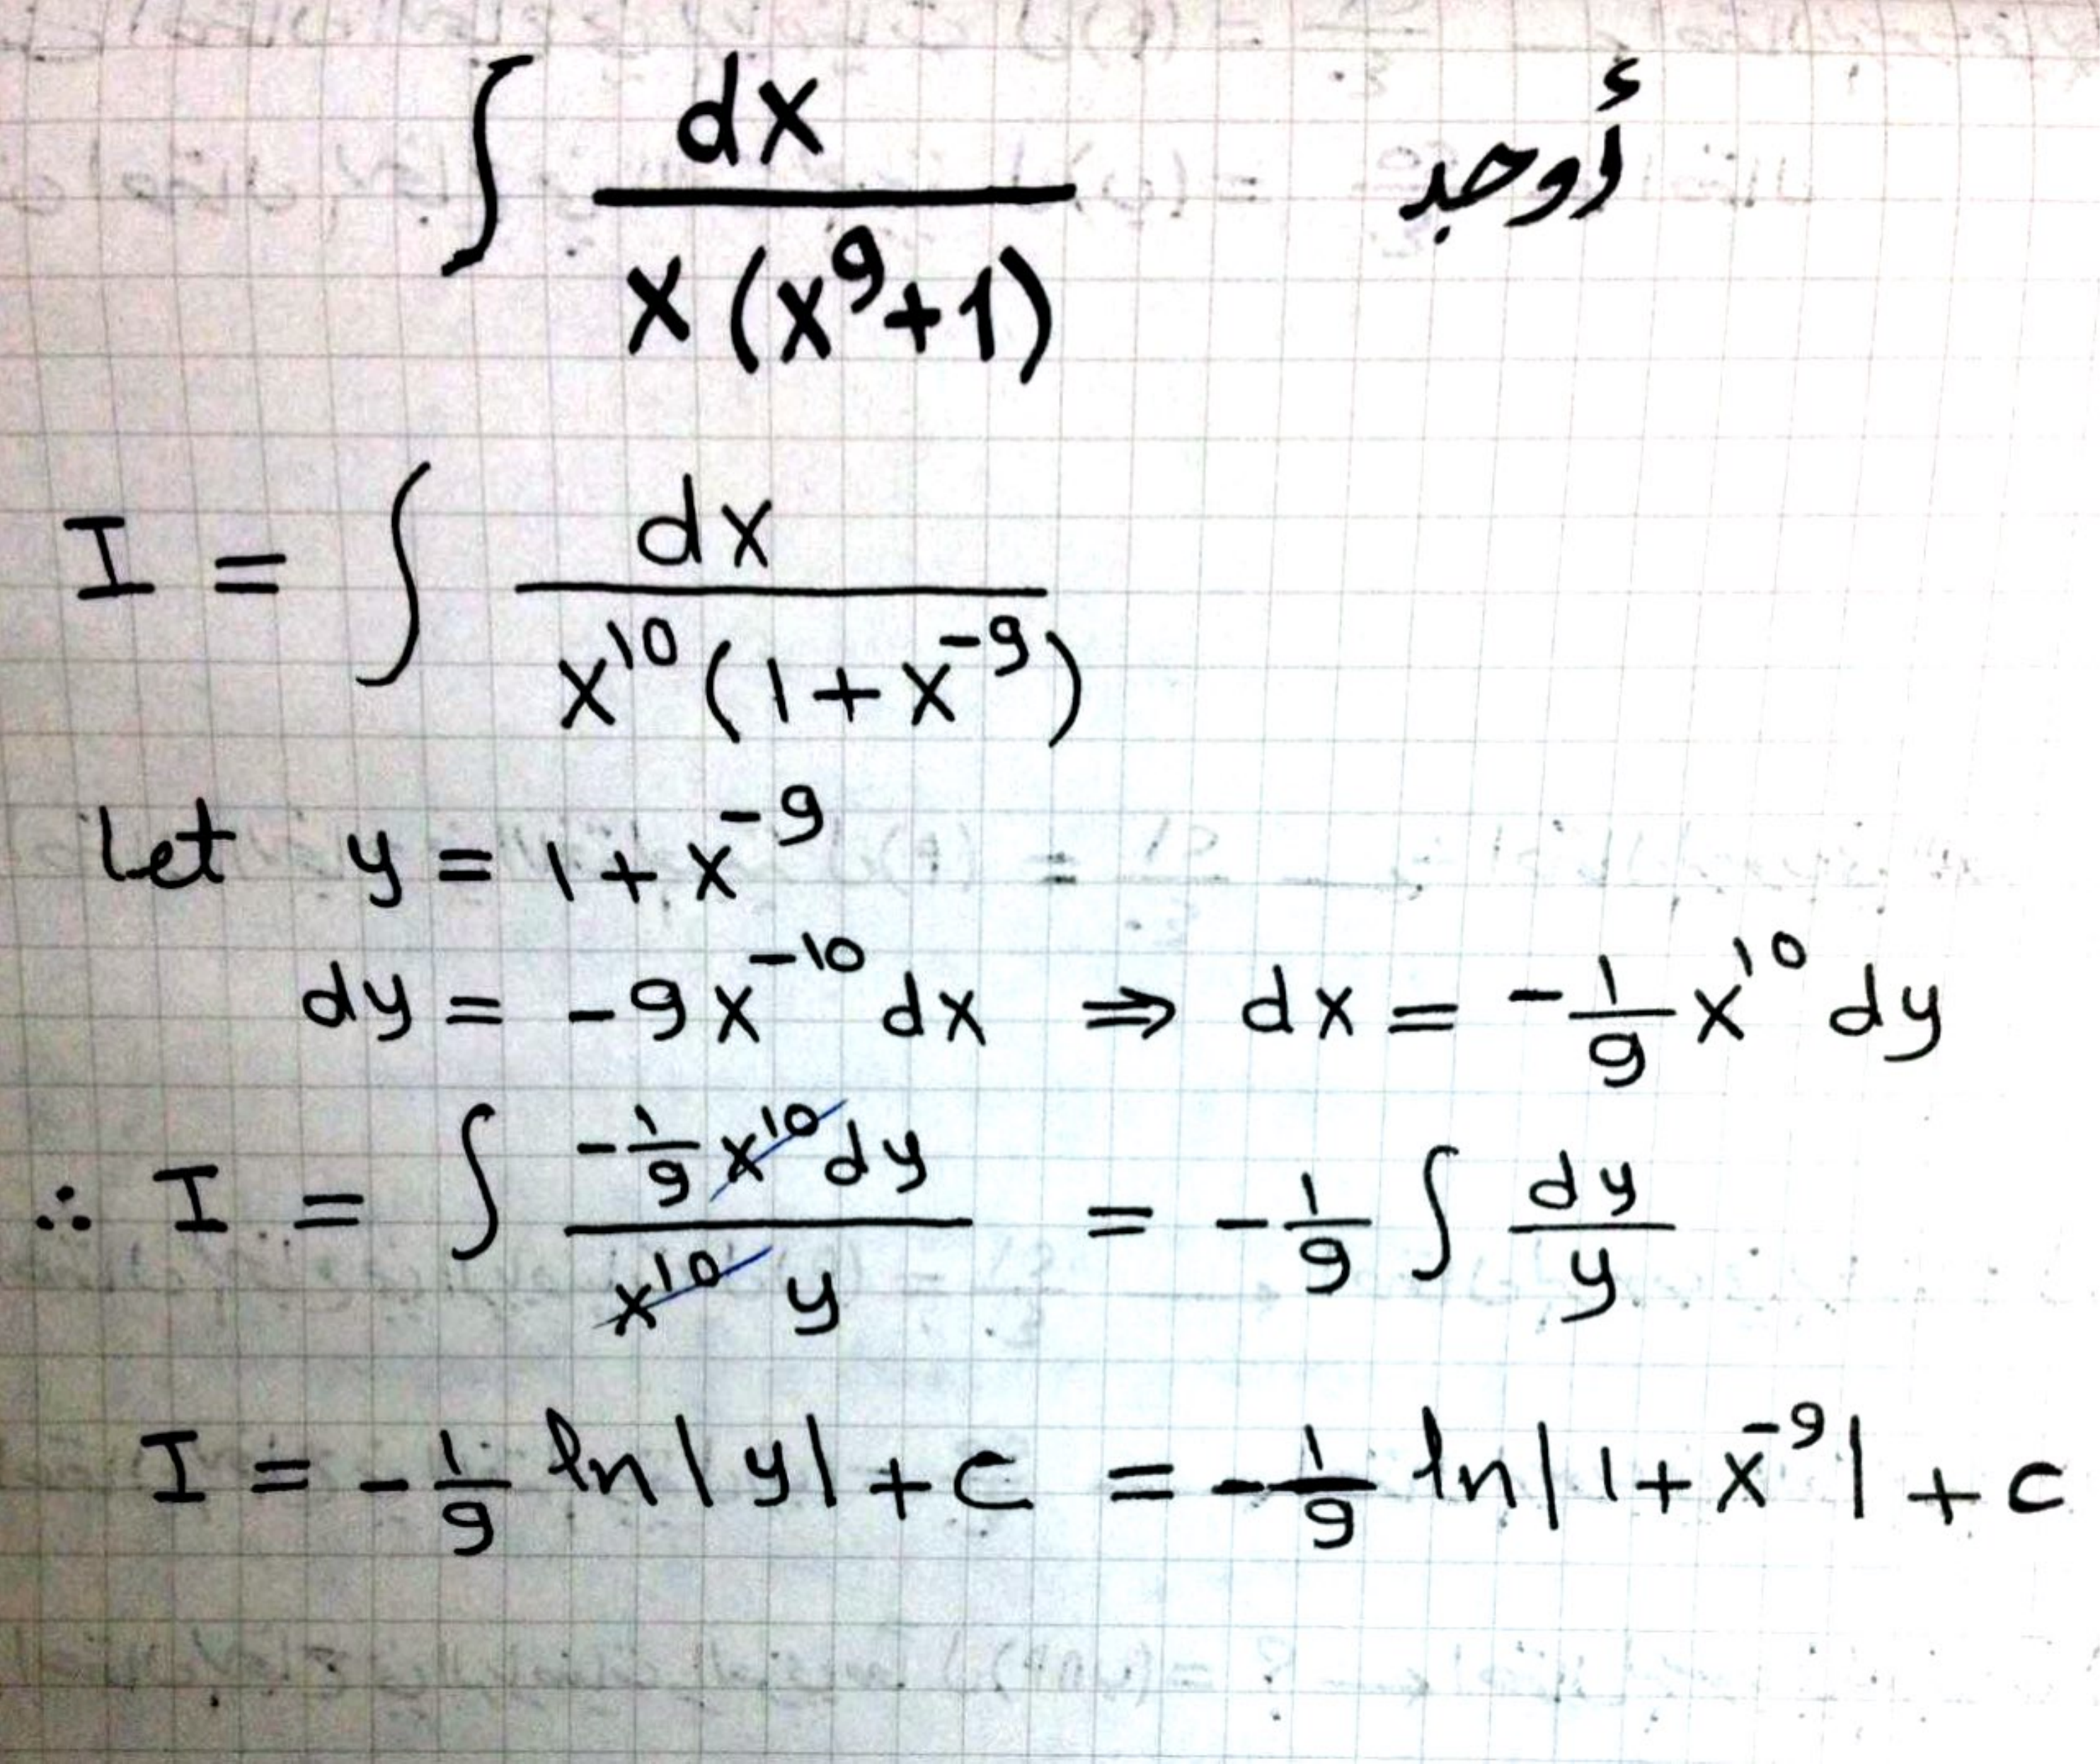 أوجد ∫ dx / x(x⁹+1)
I = ∫ dx / x¹⁰(1+x⁻⁹)
Let y = 1+x⁻⁹
dy = -9x⁻¹⁰ dx ⇒ dx = -1/9 x¹⁰ dy
∴ I = ∫ -1/9 x¹⁰ dy / x¹⁰ y = -1/9 ∫ dy/y
I = -1/9 ln|y| + c = -1/9 ln|1+x⁻⁹| + c